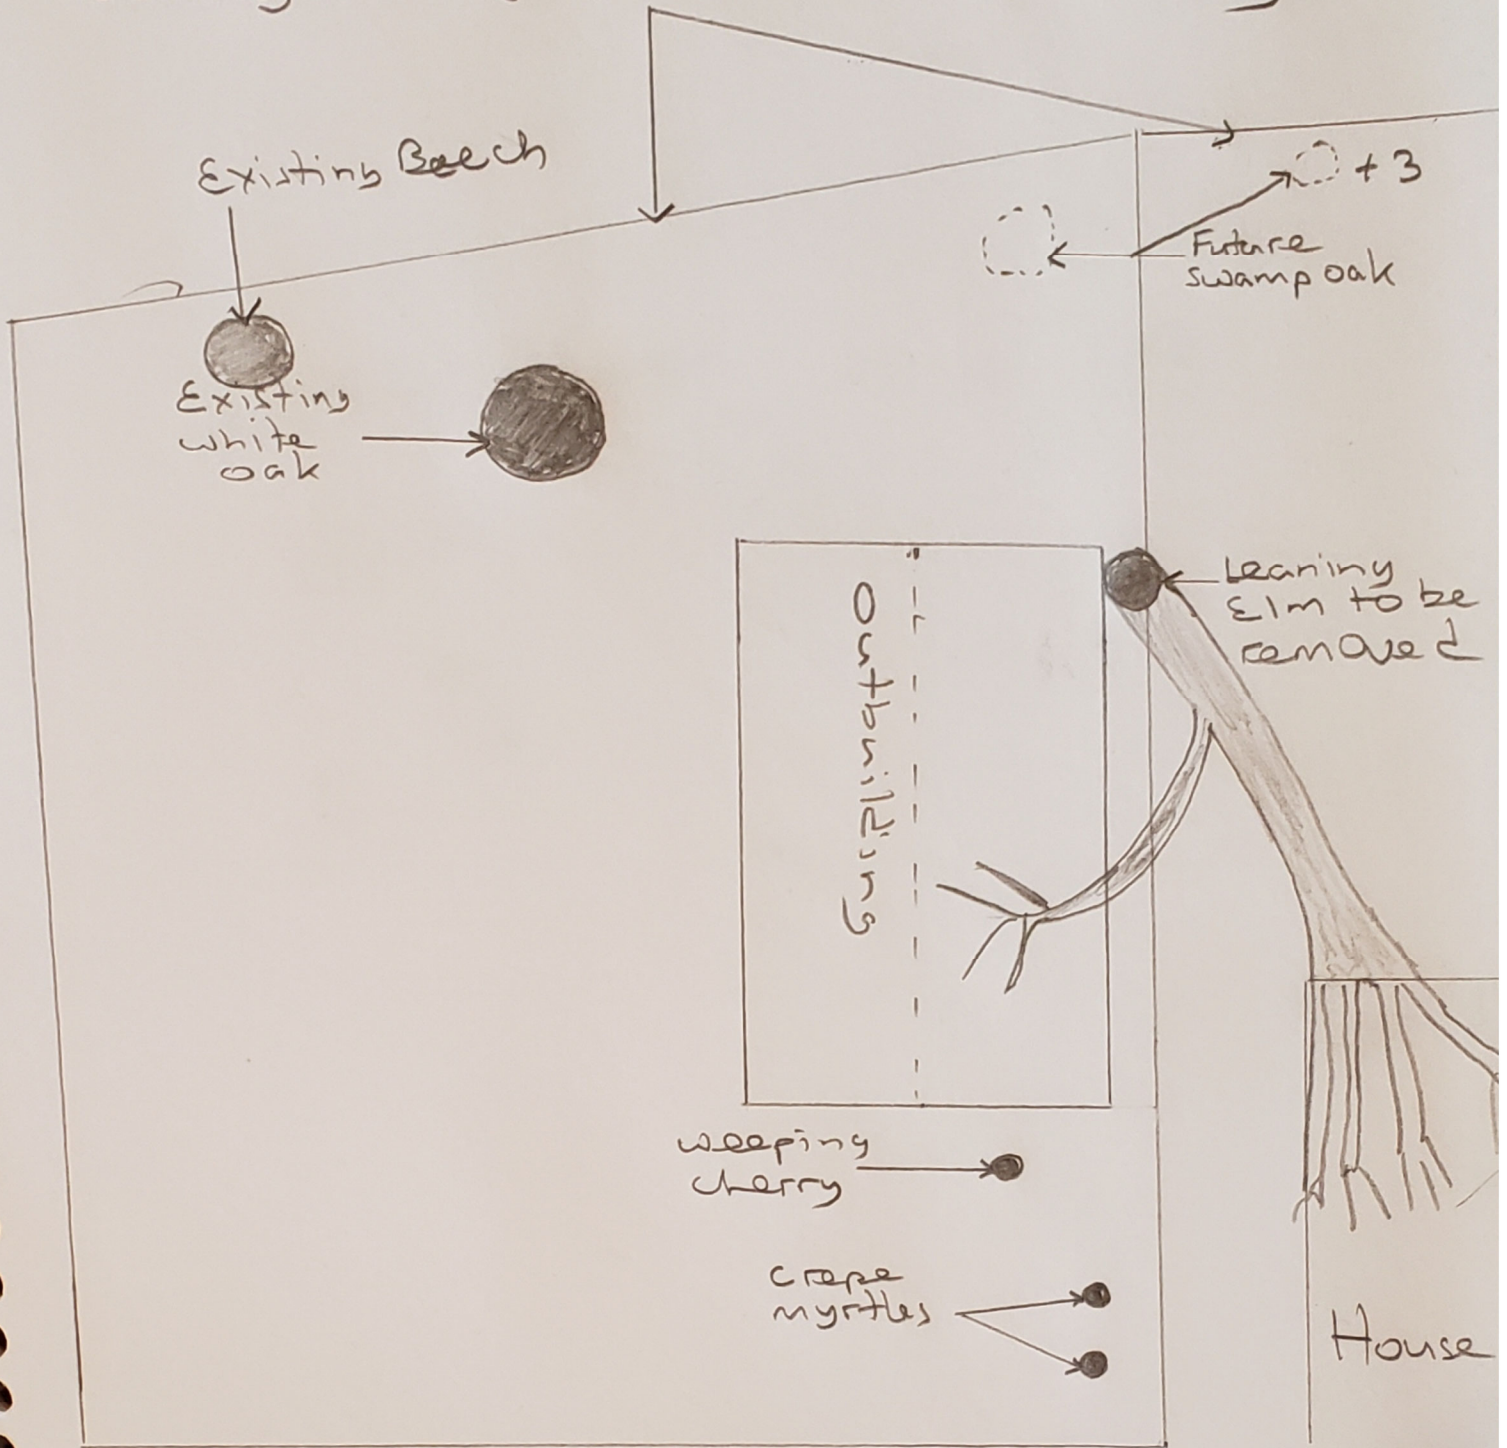 Existing Beech
+ 3
Future
swamp oak
Existing
white
oak
Leaning
Elm to be
removed
Outbuilding
weeping
cherry
crepe
myrtles
House